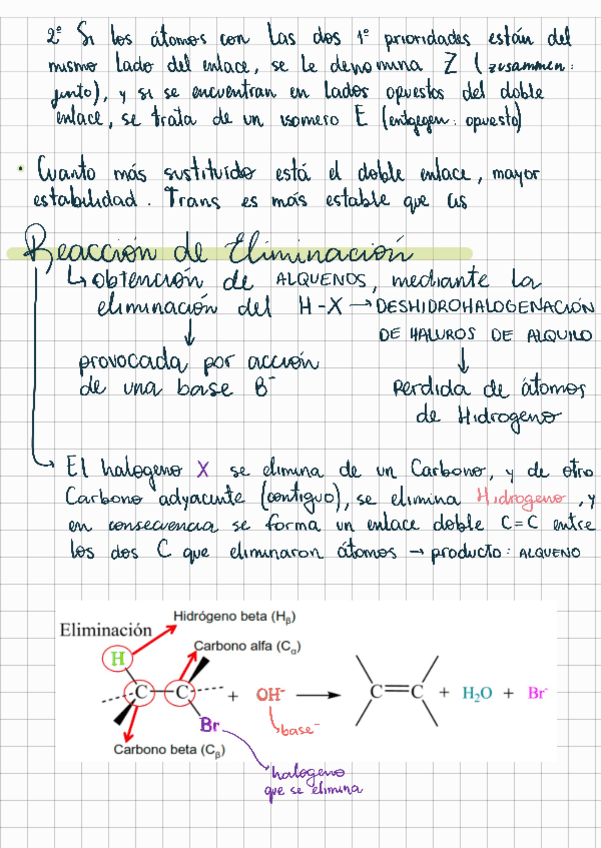 2º Si los átomos con las dos 1º prioridades están del
mismo lado del enlace, se le denomina Z (zusammen:
junto), y si se encuentran en lados opuestos del doble
enlace, se trata de un isomero E (entgegen: opuesto)
• Cuanto más sustituido está el doble enlace, mayor
estabilidad. Trans es más estable que cis
Reacción de Eliminación
↳ obtención de ALQUENOS, mediante la
eliminación del H-X → DESHIDROHALOGENACIÓN
DE HALUROS DE ALQUILO
↓ ↓
provocada por acción
de una base B⁻
Perdida de átomos
de Hidrogeno
→ El halogeno X se elimina de un Carbono, y de otro
Carbono adyacente (contiguo), se elimina Hidrogeno, y
en consecuencia se forma un enlace doble C=C entre
los dos C que eliminaron átomos → producto: ALQUENO
Hidrógeno beta (Hβ)
Eliminación
Carbono alfa (Cα)
H
C—C + OH⁻ → C=C + H₂O + Br⁻
Br
base⁻
Carbono beta (Cβ)
halogeno
que se elimina